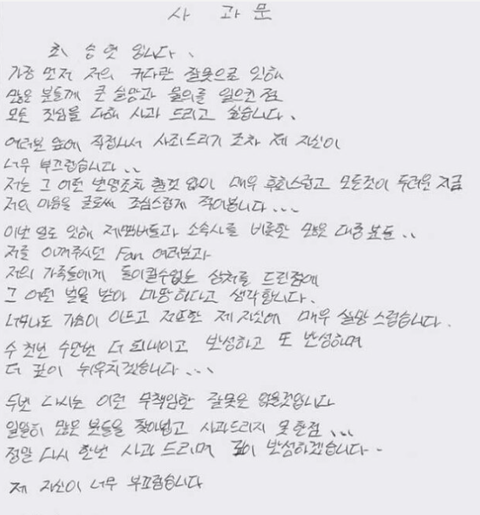 사 과 문
최 승 현 입니다.
가장 먼저 저의 커다란 잘못으로 인해
많은 분들께 큰 실망과 물의를 일으킨 점
모든 진심을 다해 사과 드리고 싶습니다.
여러분 앞에 직접나서 사죄드리기 조차 제 자신이
너무 부끄럽습니다..
저는 그 어떤 변명조차 할것 없이 매우 후회스럽고 모든것이 두려운 지금
저의 마음을 글로써 조심스럽게 적어봅니다...
이번 일로 인해 제 멤버들과 소속사를 비롯한 많은 대중분들..
저를 아껴주시던 Fan 여러분과
저의 가족들에게 돌이킬수없는 상처를 드린점에
그 어떤 벌을 받아 마땅하다고 생각합니다.
너무나도 가슴이 아프고 저또한 제 자신에 매우 실망스럽습니다.
수 천번 수만번 더 되내이고 반성하고 또 반성하며
더 깊이 뉘우치겠습니다...
두번 다시는 이런 무책임한 잘못은 없을것입니다
일일히 많은 분들을 찾아뵙고 사과드리지 못한점...
정말 다시 한번 사과 드리며 깊이 반성하겠습니다.
제 자신이 너무 부끄럽습니다